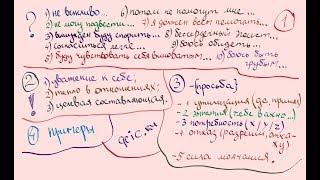 ? 1) не вежливо... 6) потом не помогут мне... 1
2) не могу подвести... 7) я должен всем помогать...
3) вынужден буду спорить... 8) бессердечный
4) относиться легче... 9) боюсь обидеть...
5) буду чувствовать себя виноватым... 10) боюсь быть грубым...
! 2 1) уважение к себе;
2) тепло в отношениях;
3) целевая составляющая.
3 - (просьба)
-1 (да, прямо)
-2 (тебе важно...)
-3 потребность (x/y/z)
-4 отказ
-5 сила молчания.
4 примеры